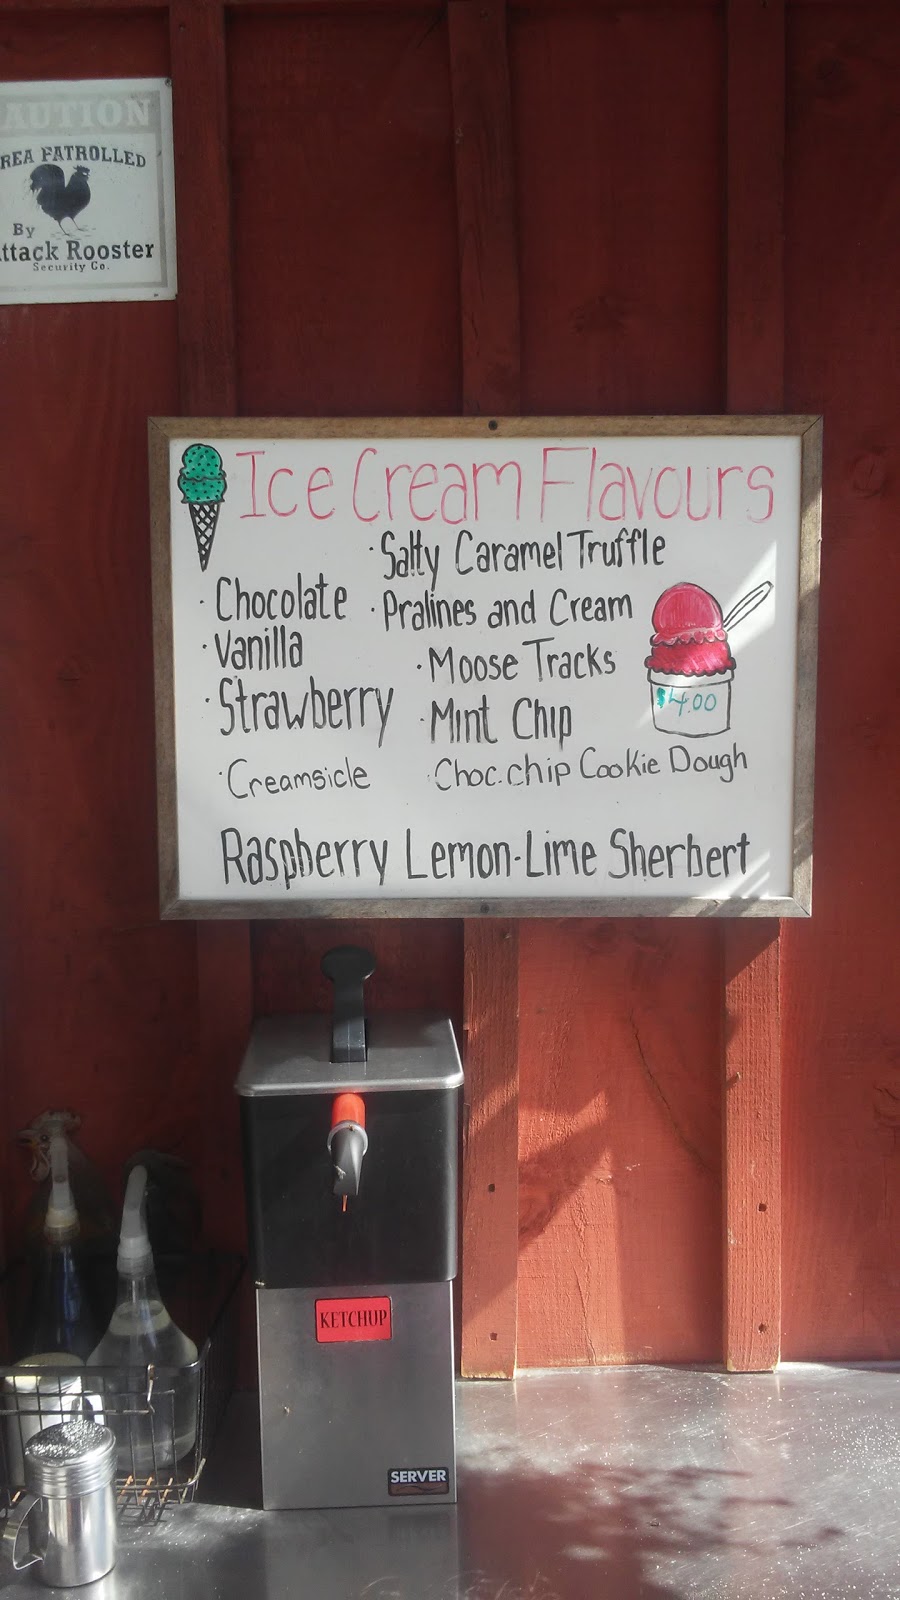 AUTION
REA PATROLLED
By
ttack Rooster
Security Co.
Ice Cream Flavours
· Salty Caramel Truffle
· Chocolate
· Pralines and Cream
· Vanilla
· Moose Tracks
· Strawberry
· Mint Chip
$4.00
· Creamsicle
· Choc.chip Cookie Dough
Raspberry Lemon-Lime Sherbert
KETCHUP
SERVER